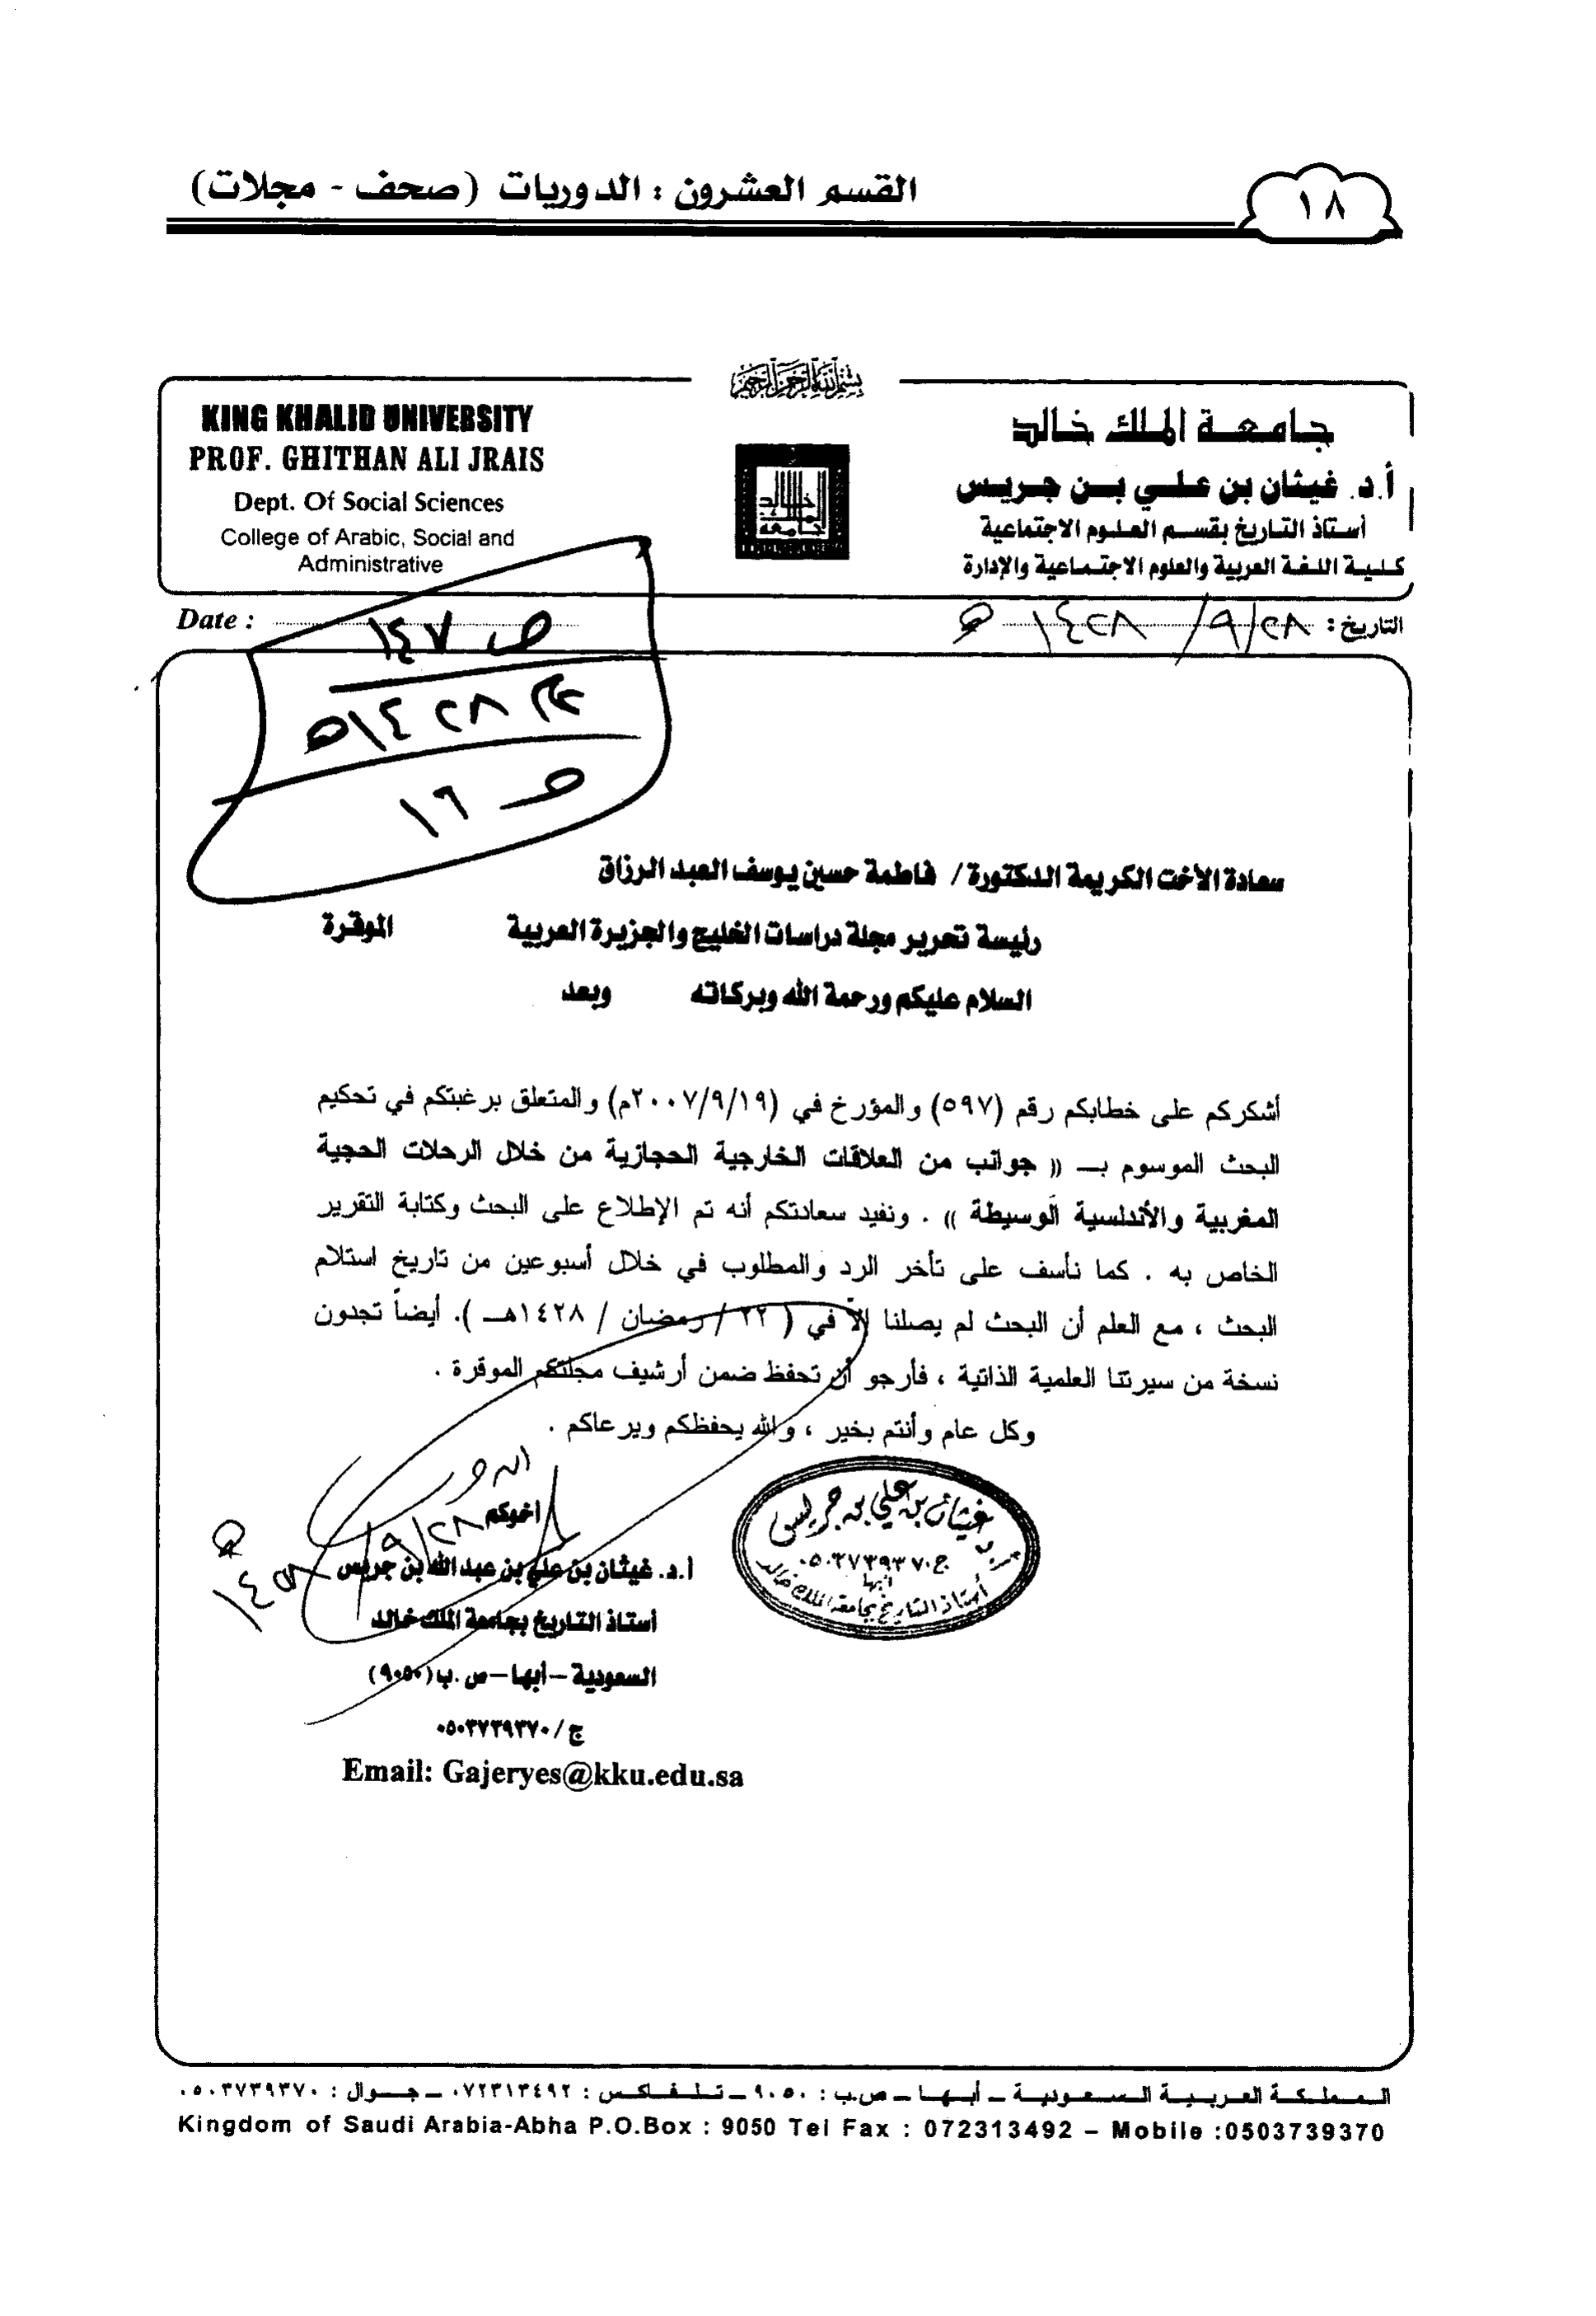 القسم العشرون : الدوريات (صحف - مجلات)
١٨
بسم الله الرحمن الرحيم
KING KHALID UNIVERSITY
PROF. GHITHAN ALI JRAIS
Dept. Of Social Sciences
College of Arabic, Social and
Administrative
جامعة الملك خالد
أ.د. غيثان بن علي بن جريس
أستاذ التاريخ بقسم العلوم الاجتماعية
كلية اللغة العربية والعلوم الاجتماعية والإدارة
التاريخ : ٢٨/٩/١٤٢٨ هـ
Date :
ص ١٤٧
١٤٢٨هـ
ص ١٦
سعادة الأخت الكريمة الدكتورة/ فاطمة حسين يوسف العبد الرزاق
رئيسة تحرير مجلة دراسات الخليج والجزيرة العربية الموقرة
السلام عليكم ورحمة الله وبركاته وبعد
أشكركم على خطابكم رقم (٥٩٧) والمؤرخ في (٢٠٠٧/٩/١٩م) والمتعلق برغبتكم في تحكيم
البحث الموسوم بـ (( جوانب من العلاقات الخارجية الحجازية من خلال الرحلات الحجية
المغربية والأندلسية الوسيطة )) . ونفيد سعادتكم أنه تم الإطلاع على البحث وكتابة التقرير
الخاص به . كما نأسف على تأخر الرد والمطلوب في خلال أسبوعين من تاريخ استلام
البحث ، مع العلم أن البحث لم يصلنا إلا في ( ٢٢ / رمضان / ١٤٢٨هـ ). أيضاً تجدون
نسخة من سيرتنا العلمية الذاتية ، فأرجو أن تحفظ ضمن أرشيف مجلتكم الموقرة .
وكل عام وأنتم بخير ، والله يحفظكم ويرعاكم .
أخوكم
٢٨/٩/١٤٢٨ هـ
أ.د. غيثان بن علي بن عبد الله بن جريس
أستاذ التاريخ بجامعة الملك خالد
السعودية – أبها – ص.ب (٩٠٥٠)
ج / ٠٥٠٣٧٣٩٣٧٠
Email: Gajeryes@kku.edu.sa
غيثان بن علي بن جريس
ج ٠٥٠٣٧٣٩٣٧٠
أبها
أستاذ التاريخ بجامعة الملك خالد
المملكة العربية السعودية – أبها – ص.ب : ٩٠٥٠ – تلفاكس : ٠٧٢٣١٣٤٩٢ – جوال : ٠٥٠٣٧٣٩٣٧٠
Kingdom of Saudi Arabia-Abha P.O.Box : 9050 Tel Fax : 072313492 – Mobile :0503739370